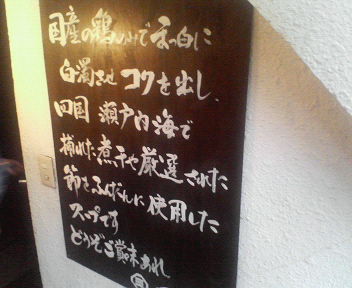 国産の鶏のみで真っ白に
白濁させコクを出し、
四国 瀬戸内海で
捕れた煮干や厳選された
節をふんだんに使用した
スープです
どうぞご賞味あれ